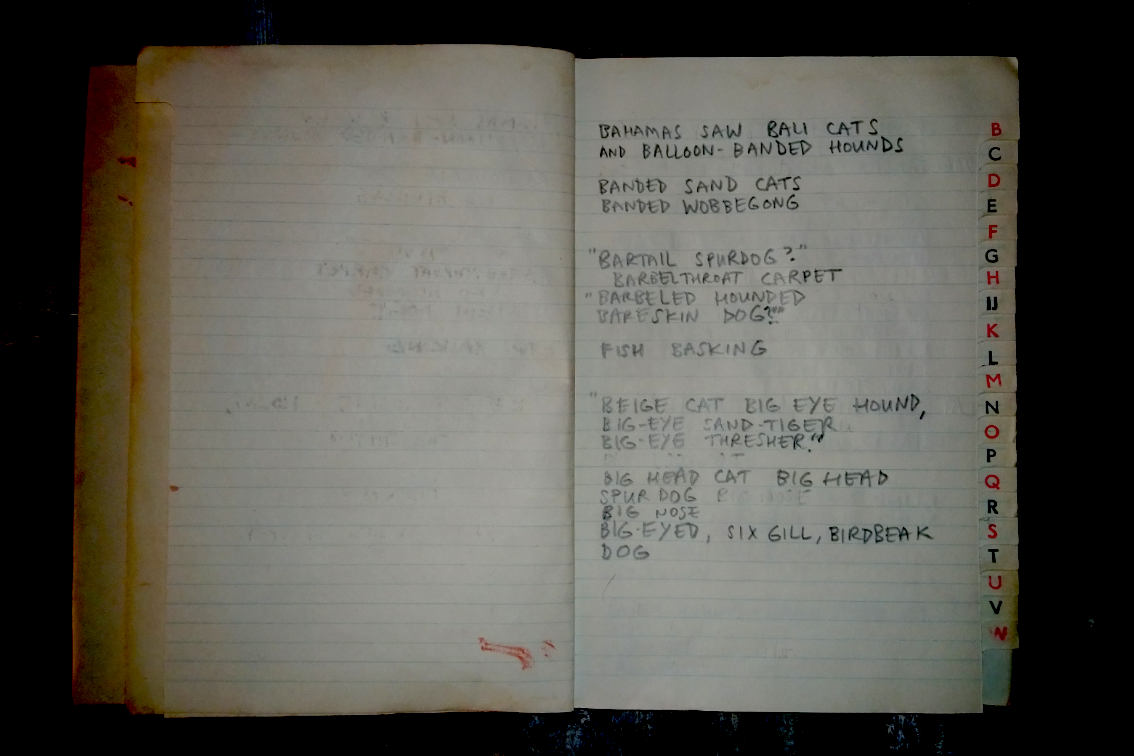 BAHAMAS SAW BALI CATS
AND BALLOON-BANDED HOUNDS
BANDED SAND CATS
BANDED WOBBEGONG
"BARTAIL SPURDOG?"
BARBELTHROAT CARPET
"BARBELED HOUNDED
BARESKIN DOG?"
FISH BASKING
"BEIGE CAT BIG EYE HOUND,
BIG-EYE SAND-TIGER
BIG-EYE THRESHER."
BIG HEAD CAT BIG HEAD
SPUR DOG
BIG NOSE
BIG-EYED, SIX GILL, BIRDBEAK
DOG
B
C
D
E
F
G
H
IJ
K
L
M
N
O
P
Q
R
S
T
U
V
W